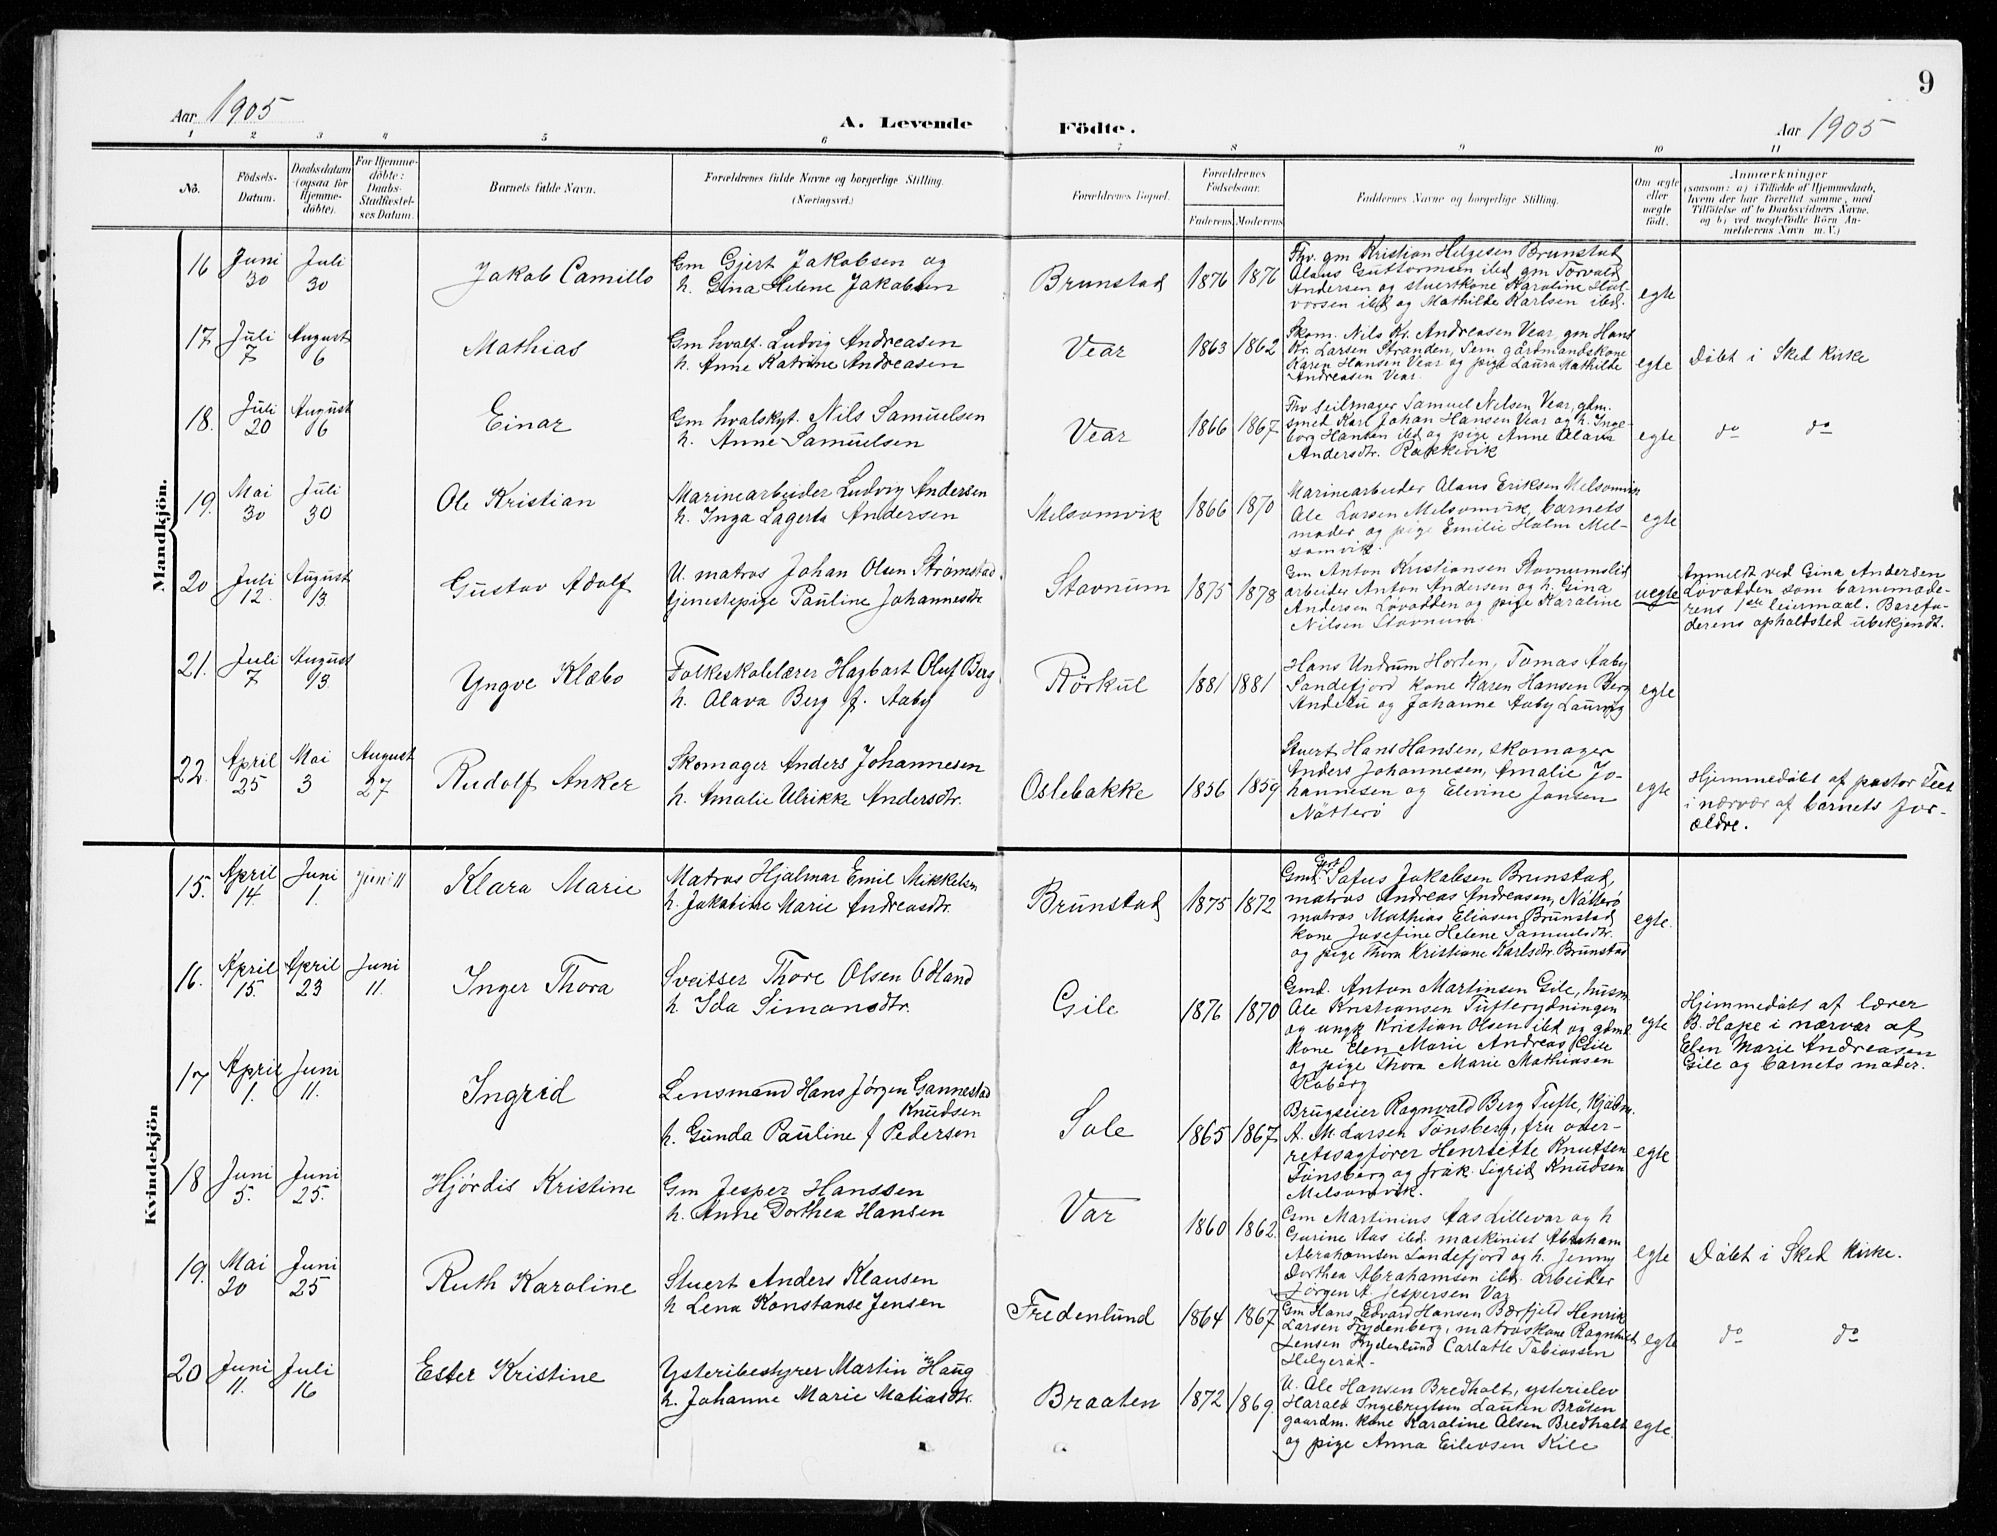 9
Aar 1905
A. Levende Födte.
Aar 1905
1 2 3 4 5 6 7 8 9 10 11
No.
Födsels-Datum.
Daabsdatum (ogsaa for Hjemme-döbte).
For Hjemme-döbte: Daabs-Stadfæstel-ses Datum.
Barnets fulde Navn.
Forældrenes fulde Navne og borgerlige Stilling.
(Næringsvei.)
Forældrenes Bopæl.
Forældrenes Födselsaar.
Faderens Moderens
Faddernes Navne og borgerlige Stilling.
Om ægte eller uægte födt.
Anmærkninger
(saasom: a) i Tilfælde af Hjemmedaab,
hvem der har forrettet samme, med
Tilföielse af to Daabsvidners Navne.
og b) ved uægtefödte Börn An-
melderens Navn m. V.)
Mandkjön.
16 Juni 30 Juli 30 Jakob Camillo
Gm Gjert Jakobsen og
h. Gina Helene Jakobsen
Brunstad 1876 1876
Thv. gm Kristian Helgesen Brunstad
Olaus Guttormsen ibd, gm Torvald
Andersen og stuertkone Karoline Hal-
vorsen ibd og Mathilde Karlsen ibd.
egte
17 Juli 7 August 6 Mathias
Gm hvalf. Ludvig Andreasen
h. Anne Katrine Andreasen
Vear 1863 1862
Skom. Nils Kr. Andreasen Vear, gm Hans
Kr. Larsen Stranden, Sem gårdmandskone
Karen Hansen Vear og pige Laura Mathilde
Andreasen Vear.
egte
Døbt i Sked Kirke
18. Juli 20 August 6 Einar
Gm hvalskyt. Nils Samuelsen
h. Anne Samuelsen
Vear 1866 1867
Thv seilmager Samuel Nilsen Vear, gdm.
smed Karl Johan Hansen Vear og h. Inge-
borg Hansen ibd og pige Anne Olava
Andersdtr. Rakkevik
egte
do do
19. Mai 30 Juli 30 Ole Kristian
Marinearbeider Ludvig Andersen
h. Inga Lagerta Andersen
Melsomvik 1866 1870
Marinearbeider Olaus Eriksen Melsomvik
Ole Larsen Melsomvik, barnets
moder og pige Emilie Holm Mel-
somvik.
egte
20 Juli 12. August 13. Gustav Adolf
U. matros Johan Olsen Strømstad,
tjenestepige Pauline Johannesdtr
Stavnum 1875 1878
Gm Anton Kristiansen Stavnumslid
arbeider Anton Andersen og h. Gina
Andersen Løvodden og pige Karoline
Nilsen Stavnum
uegte
Anmeldt ved Gina Andersen
Løvodden som barnemode-
rens 1ste leiermaal. Barnefa-
derens opholdsted ubekjendt.
21. Juli 7 August 13. Yngve Klæbo
Folkeskolelærer Hagbart Oluf Berg
h. Olava Berg f. Aaby
Rörkul 1881 1881
Hans Undrum Horten, Tomas Aaby
Sandefjord kone Karen Hansen Berg
Andebu og Johanne Aaby Laurvig
egte
22. April 25 Mai 3 August 27 Rudolf Anker
Skomager Anders Johannesen
h. Amalie Ulrikke Andersdtr.
Oslebakke 1856 1859
Stuert Hans Hansen, skomager
Anders Johannesen, Amalie Jo-
hannesen og Elevine Jansen
Nötterö
egte
Hjemmedöbt af pastor Feet
i nærvær af barnets for-
ældre.
Kvindekjön
15. April 14. Juni 1. Juni 11 Klara Marie
Matros Hjalmar Emil Mikkelsen
h. Jakobine Marie Andreasdtr.
Brunstad 1875 1872
Gmd. Sofus Jakobsen Brunstad
matros Andreas Andreasen, Nötterö
matros Mathias Eliasen Brunstad
kone Josefine Helene Samuelsdtr.
og pige Thora Kristiane Karlsdtr. Brunstad
egte.
16. April 15. April 23 Juni 11. Inger Thora
Sveitser Thore Olsen Odland
h Ida Simonsdtr.
Gile 1876 1870
Gmd. Anton Martinsen Gile, husm.
Ole Kristiansen Tufterydningen
og ungk Kristian Olsen ibd og gdmd.
kone Elen Marie Andreas Gile
og pige Thora Marie Mathiasen
Roberg
egte
Hjemmedöbt af lærer
B. Hope i nærvær af
Elen Marie Andreasen
Gile og barnets moder.
17 April 1. Juni 11. Ingrid
Lensmand Hans Jørgen Gannestad
Knudsen
h. Gunda Pauline f Pedersen
Sole 1865 1867
Brugseier Ragnvald Berg Tufte, Kjöbm.
A. M. Larsen Tønsberg, fru over-
retssagfører Henriette Knutsen
Tønsberg og frøk. Sigrid Knudsen
Melsomvik.
egte
18 Juni 5. Juni 25. Hjørdis Kristine
Gm Jesper Hanssen
h. Anne Dorthea Hansen
Var 1860 1862.
Gm Martinius Aas Lillevar og h
Gurine Aas ibd. maskinist Abraham
Abrahamsen Sandefjord og h. Jenny
Dorthea Abrahamsen ibd. arbeider
Jørgen A. Jespersen Var
egte
Døbt i Sked Kirke.
19. Mai 20 Juni 25 Ruth Karoline
Stuert Anders Klausen
h Lena Konstanse Jensen
Fredenlund 1864 1867
Gm Hans Edvard Hansen Bærfjeld Henrik
Larsen Frydenberg, matroskone Ragnhild
Jensen Frydenlund Carlotte Tobiassen
Helgerød
egte
do do
20 Juni 11. Juli 16 Ester Kristine
Ysteribestyrer Martin Haug
h. Johanne Marie Matiasdtr.
Braaten 1872 1869.
U. Ole Hansen Bredholt, ysterielev
Harald Ingebrigtsen Lauten Bråten
gaardm. kone Karoline Olsen Bredholt
og pige Anna Eilevsen Kile
egte.